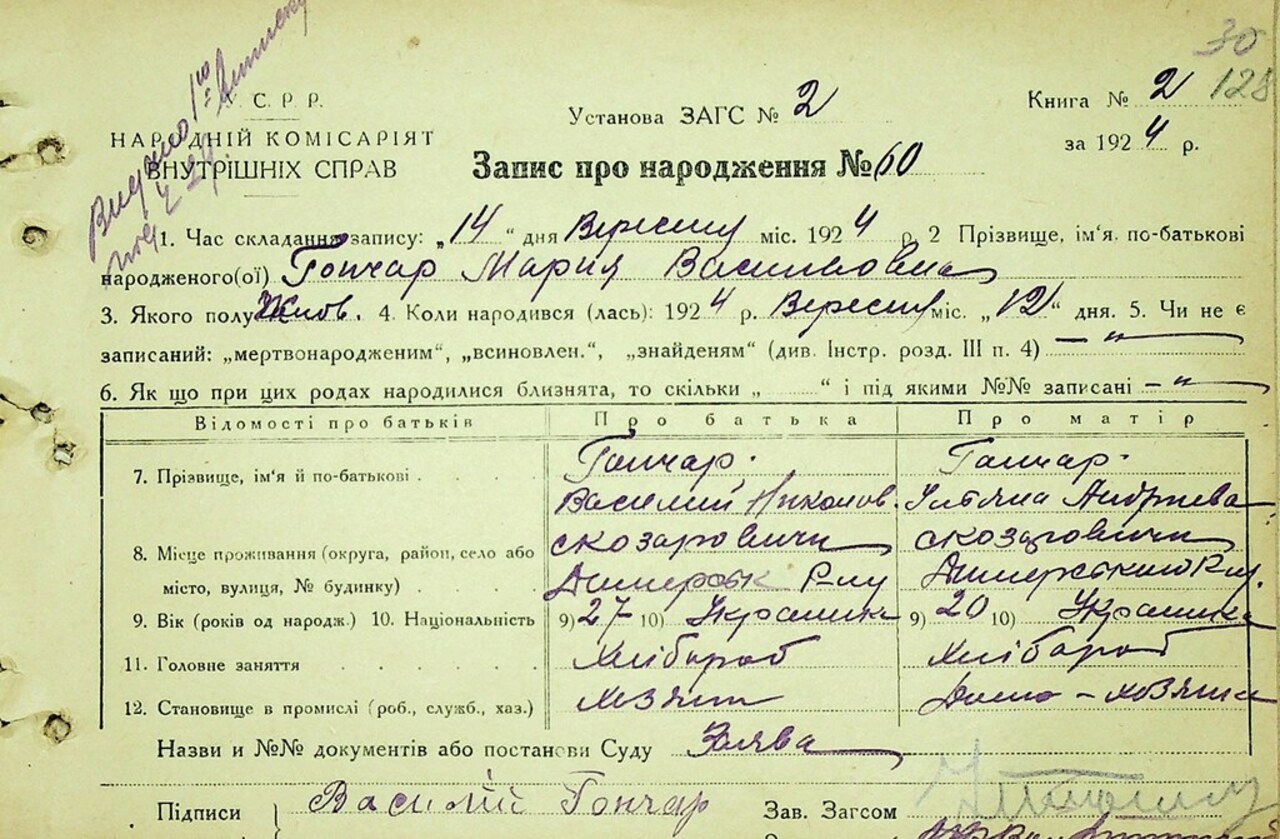 30
128
У. С. Р. Р.
НАРОДНІЙ КОМІСАРІЯТ
ВНУТРІШНІХ СПРАВ
Установа ЗАГС № 2
Книга № 2
за 1924 р.
Запис про народження № 60
1. Час складання запису: „14“ дня Вересня міс. 1924 р. 2 Прізвище, ім'я, по-батькові
народженого(ої) Гончар Мария Васильовна
3. Якого полу Жіноч. 4. Коли народився (лась): 1924 р. Вересня міс. „12“ дня. 5. Чи не є
записаний: „мертвонародженим“, „всиновлен.“, „знайденям“ (див. Інстр. розд. III п. 4) — „ —
6. Як що при цих родах народилися близнята, то скільки „ “ і під якими №№ записані — „ —
Відомості про батьків Про батька Про матір
7. Прізвище, ім'я й по-батькові Гончар Гончар
Василий Николов. Ульяна Андріева
8. Місце проживання (округа, район, село або скозаровичи скозаровичи
місто, вулиця, № будинку) Димерськ Р-ну Димерського Р-ну
9. Вік (років од народж.) 10. Національність 9) 27 10) Українк 9) 20 10) Українка
11. Головне заняття Хлібороб Хлібороб
12. Становище в промислі (роб., служб., хаз.) хозяин Домо-хозяика
Назви и №№ документів або постанови Суду Заява
Підписи Василій Гончар Зав. Загсом